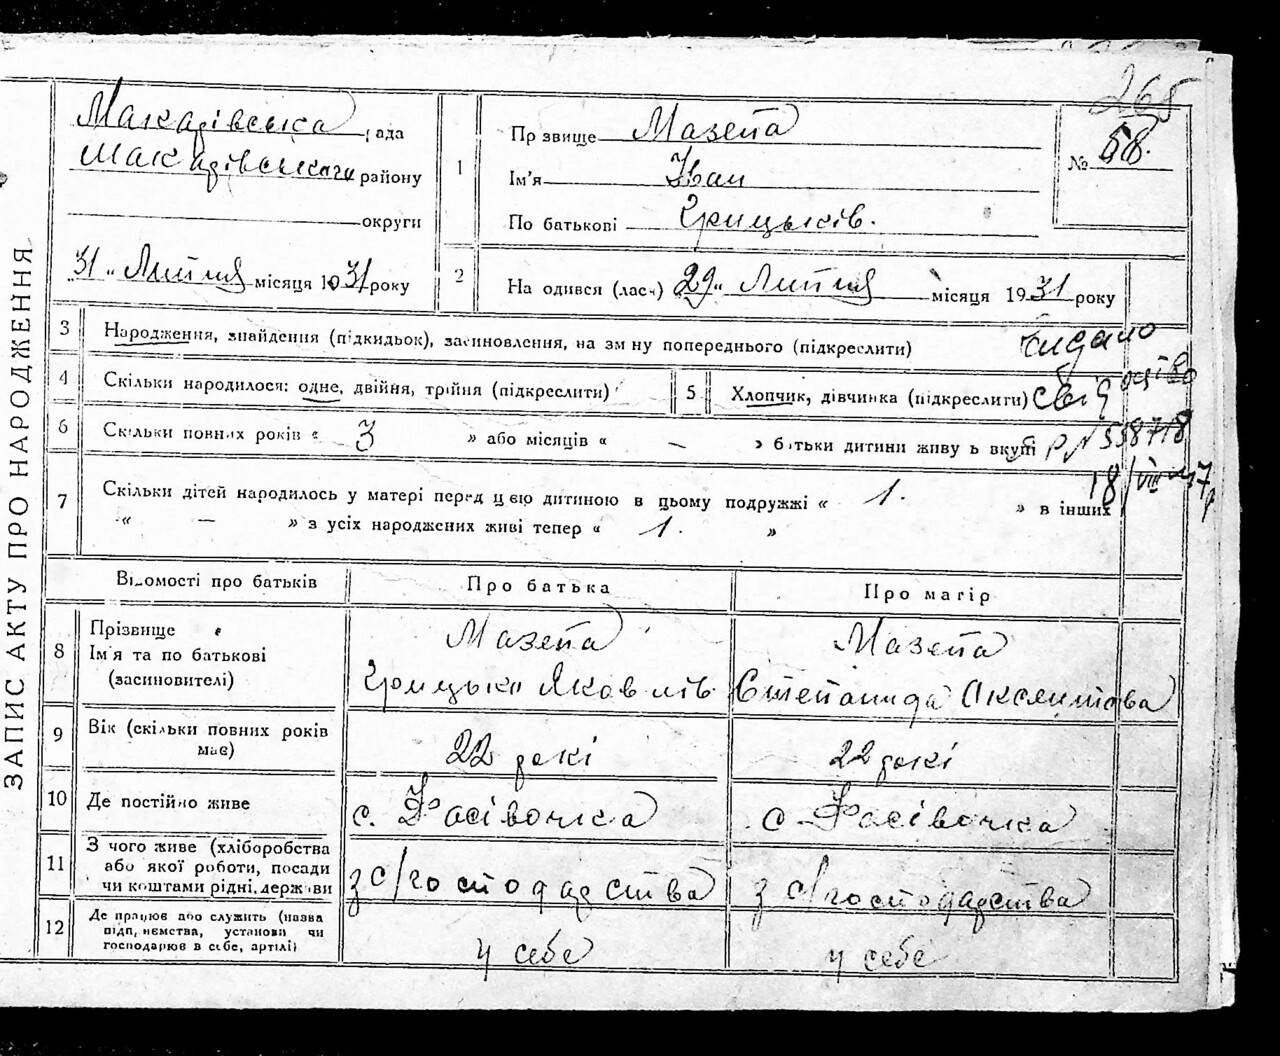 265
ЗАПИС АКТУ ПРО НАРОДЖЕННЯ
Макарівська рада
Макарівського району
округи
31 " Липня місяця 1931 року
1
Прзвище Мазепа
Ім'я Іван
По батькові Грицьків.
№ 58.
2
На одився (лась) 29 " Липня місяця 1931 року
3 Народження, знайдення (підкидьок), засиновлення, на зміну попереднього (підкреслити)
Видано
4 Скільки народилося: одне, двійня, трійня (підкреслити)
5 Хлопчик, дівчинка (підкреслити)
6 Скільки повних років « 3 » або місяців « — » батьки дитини живуть вкупі
Р № 558718
7 Скільки дітей народилось у матері перед цією дитиною в цьому подружжі « 1. » в інших
18/VIII 47 р
« — » з усіх народжених живі тепер « 1. »
Відомості про батьків
Про батька
Про матір
8 Прізвище
Ім'я та по батькові
(засиновителі)
Мазепа
Грицько Яковлів
Мазепа
Степанида Оксентова
9 Вік (скільки повних років має)
22 рокі
22 рокі
10 Де постійно живе
с. Фасівочка
с. Фасівочка
11 З чого живе (хліборобства
або якої роботи, посади
чи коштами рідні, держави
з с/господарства
з с/господарства
12 Де працює або служить (назва
підп,иємства, установи чи
господарює в себе, артілі)
у себе
у себе